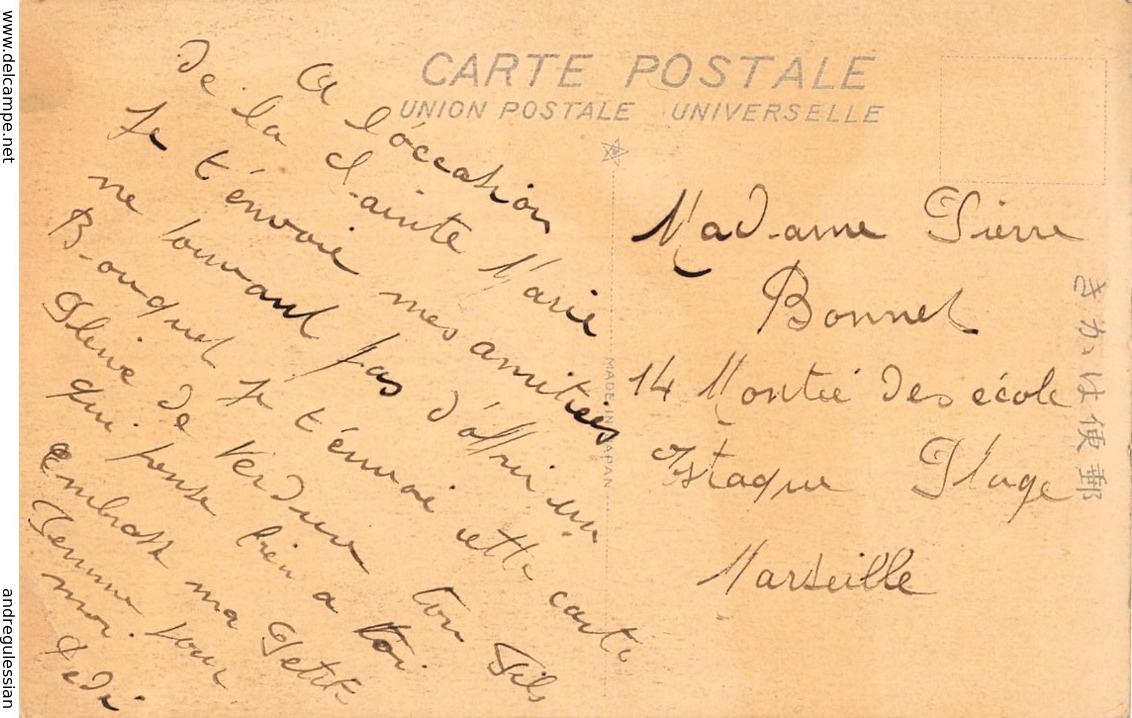 CARTE POSTALE
UNION POSTALE UNIVERSELLE
A l'occasion
de la Sainte Marie
Je t'envoie mes amitiés
ne pouvant pas d'offrir un
Bouquet Je t'envoi cette carte
Pleine de Verdure ton Fils
qui pense bien a toi
embrasse ma Petite
Femme pour
moi.
Dédé
Madame Pierre
Bonnet
14 Montée des école
Estaque Plage
Marseille
MADE IN JAPAN
郵便はかき
www.delcampe.net
andregulessian